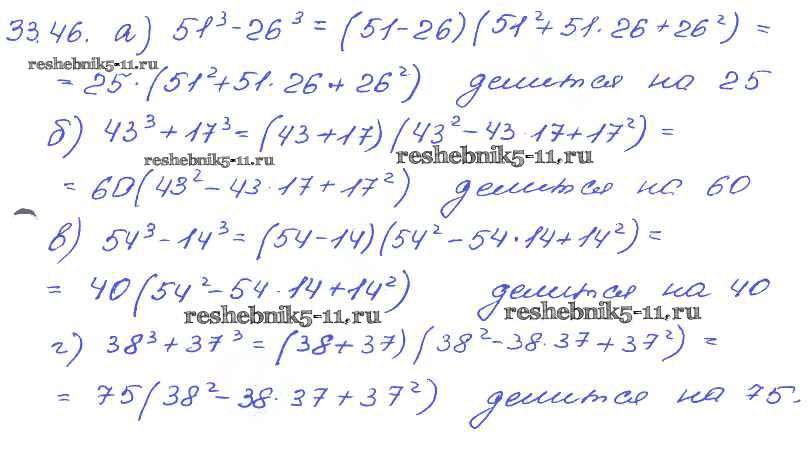 33.46. а) 51³ - 26³ = (51 - 26)(51² + 51·26 + 26²) =
reshebnik5-11.ru
= 25·(51² + 51·26 + 26²) делится на 25
б) 43³ + 17³ = (43 + 17)(43² - 43·17 + 17²) =
reshebnik5-11.ru reshebnik5-11.ru
= 60(43² - 43·17 + 17²) делится на 60
в) 54³ - 14³ = (54 - 14)(54² - 54·14 + 14²) =
= 40(54² - 54·14 + 14²) делится на 40
reshebnik5-11.ru reshebnik5-11.ru
г) 38³ + 37³ = (38 + 37)(38² - 38·37 + 37²) =
= 75(38² - 38·37 + 37²) делится на 75.